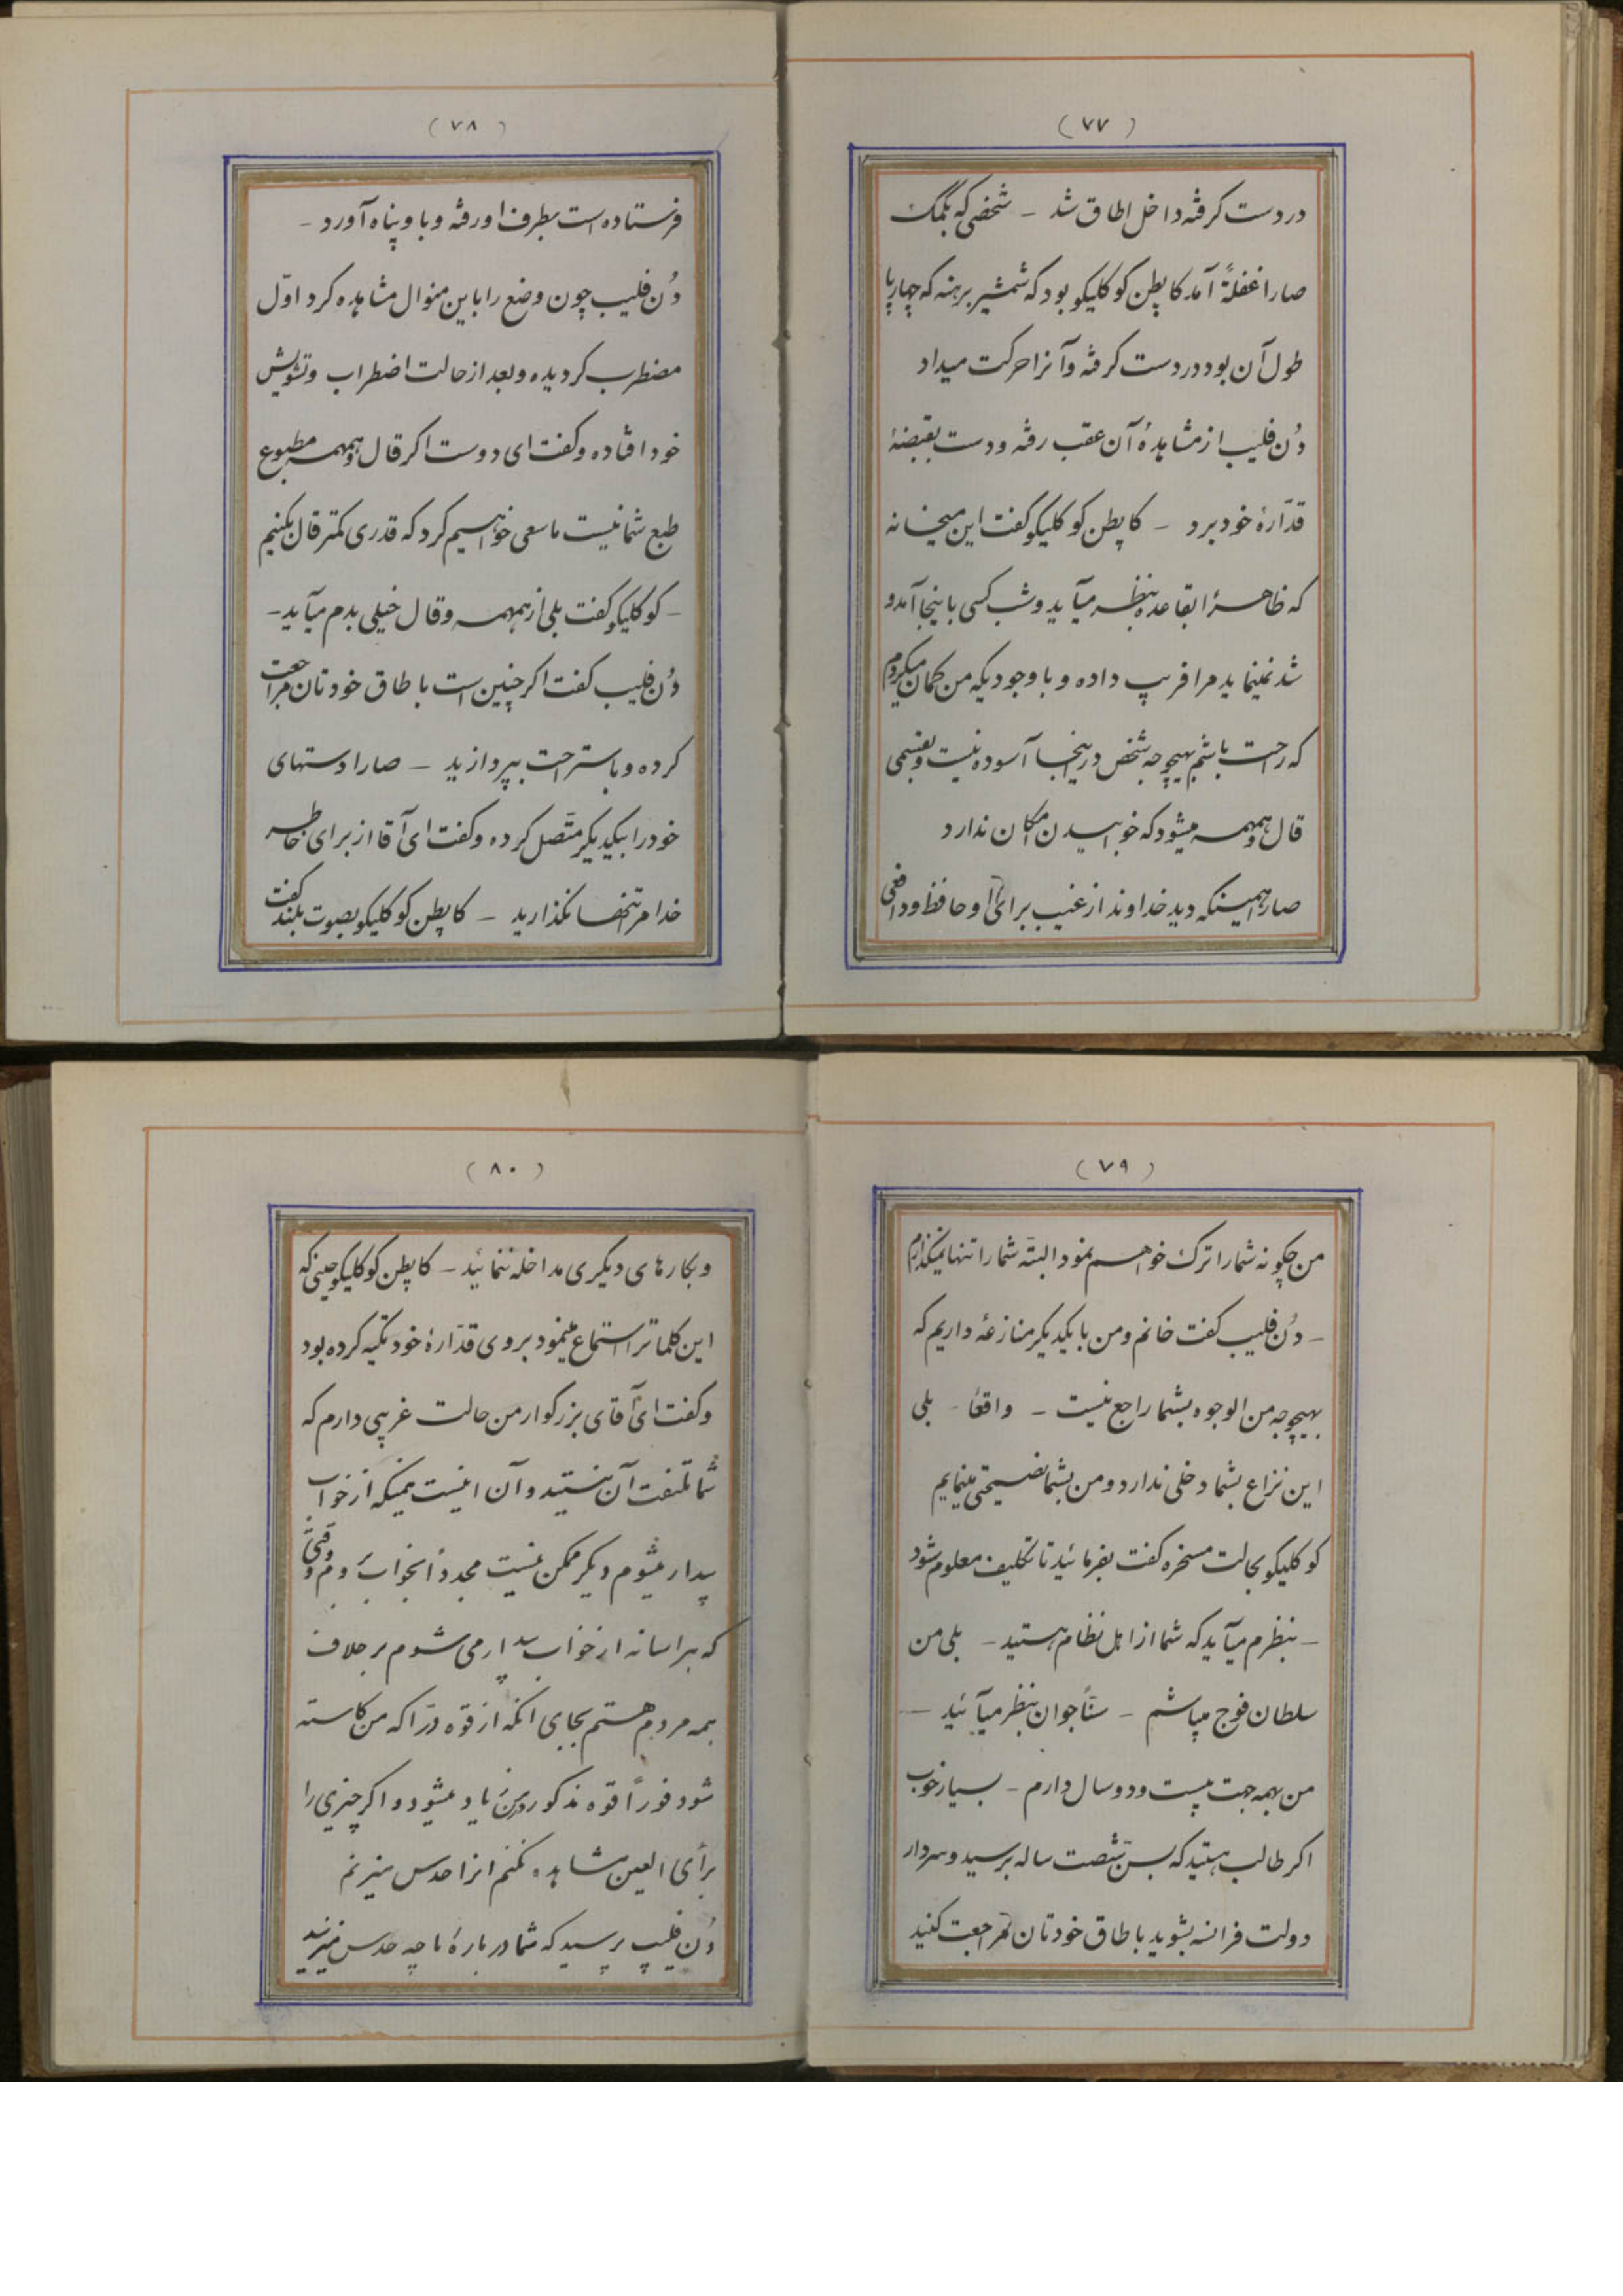 (۷۷)
در دست گرفته داخل اطاق شد – شخصی که بکمک
صارا غفلةً آمد کاپطن کوکلیکو بود که شمشیر برهنه که چهار پا
طول آن بود در دست گرفته و آنرا حرکت میداد
دُن فلیپ از مشاهدهٔ آن عقب رفته و دست بقبضهٔ
قدّارهٔ خود برد – کاپطن کوکلیکو گفت این میخانه
که ظاهراً بقاعده بنظر میآید و شب کسی باینجا آمد و
شد نمینماید مرا فریب داده و با وجودیکه من گمان میکردم
که راحت باشم بهیچوجه شخص در اینجا آسوده نیست و بقسمی
قال و همهمه میشود که خوابیدن امکان ندارد
صارا همینکه دید خداوند از غیب برای او حافظ و دافعی
(۷۸)
فرستاده است بطرف او رفته و باو پناه آورد –
دُن فلیپ چون وضع را باین منوال مشاهده کرد اوّل
مضطرب گردیده و بعد از حالت اضطراب و تشویش
خود افتاده و گفت ای دوست اگر قال و همهمه مطبوع
طبع شما نیست ما سعی خواهیم کرد که قدری کمتر قال بکنیم
– کوکلیکو گفت بلی از همهمه و قال خیلی بدم میآید –
دُن فلیپ گفت اگر چنین است باطاق خودتان مراجعت
کرده و باستراحت بپردازید – صارا دستهای
خود را بیکدیگر متّصل کرده و گفت ای آقا از برای خاطر
خدا مرا تنها نگذارید – کاپطن کوکلیکو بصوت بلند گفت
(۷۹)
من چگونه شما را ترک خواهم نمود البتّه شما را تنها نمیگذارم
– دُن فلیپ گفت خانم و من با یکدیگر منازعهٔ داریم که
بهیچوجه من الوجوه بشما راجع نیست – واقعاً – بلی
این نزاع بشما دخلی ندارد و من بشما نصیحتی مینمایم
کوکلیکو بحالت مسخره گفت بفرمائید تا تکلیف معلوم شود
– بنظرم میآید که شما از اهل نظام هستید – بلی من
سلطان فوج میباشم – سنّاً جوان بنظر میآئید –
من بهمه جهت بیست و دو سال دارم – بسیار خوب
اگر طالب هستید که بسنّ شصت ساله برسید و سردار
دولت فرانسه بشوید باطاق خودتان مراجعت کنید
(۸۰)
و بکارهای دیگری مداخله ننمائید – کاپطن کوکلیکو حینی که
این کلماترا استماع مینمود بروی قدّارهٔ خود تکیه کرده بود
و گفت ای آقای بزرگوار من حالت غریبی دارم که
شما ملتفت آن نیستید و آن اینست همینکه از خواب
بیدار میشوم دیگر ممکن نیست مجدداً بخواب بروم و وقتی
که هراسانه از خواب بیدار می شوم برخلاف
همه مردم هستم بجای آنکه از قوّه درّاکه من کاسته
شود فوراً قوّه مذکور در من زیاد میشود و اگر چیزی را
برأی العین مشاهده نکنم آنرا حدس میزنم
دُن فلیپ پرسید که شما در بارهٔ ما چه حدس میزنید